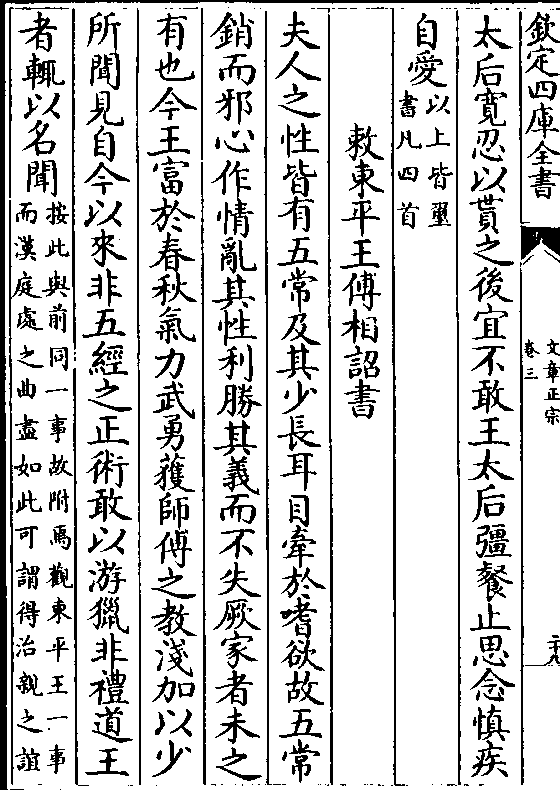 欽定四庫全書
文章正宗
卷三
二十八
太后寬忍以貰之後宜不敢王太后彊餐止思念慎疾
自愛以上皆璽
書凡四首
敕東平王傅相詔書
夫人之性皆有五常及其少長耳目牽於嗜欲故五常
銷而邪心作情亂其性利勝其義而不失厥家者未之
有也今王富於春秋氣力武勇獲師傅之教淺加以少
所聞見自今以來非五經之正術敢以游獵非禮道王
者輒以名聞按此與前同一事故附焉觀東平王一事
而漢庭處之曲盡如此可謂得治親之誼